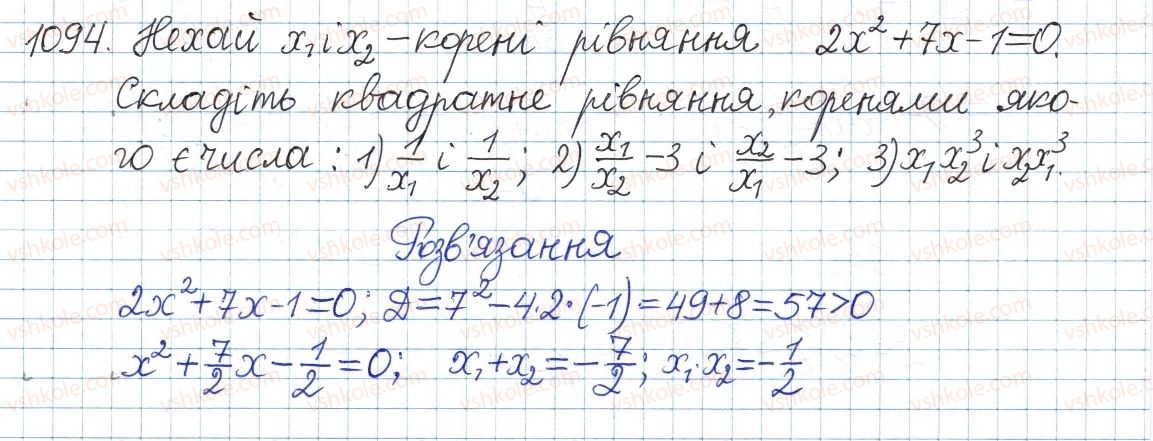 1094. Нехай x₁ і x₂ – корені рівняння 2x² + 7x - 1 = 0.
Складіть квадратне рівняння, коренями яко-
го є числа: 1) 1/x₁ і 1/x₂; 2) x₁/x₂ - 3 і x₂/x₁ - 3; 3) x₁x₂³ і x₂x₁³.
Розв'язання
2x² + 7x - 1 = 0; Д = 7² - 4·2·(-1) = 49 + 8 = 57 > 0
x² + 7/2 x - 1/2 = 0; x₁ + x₂ = -7/2; x₁·x₂ = -1/2